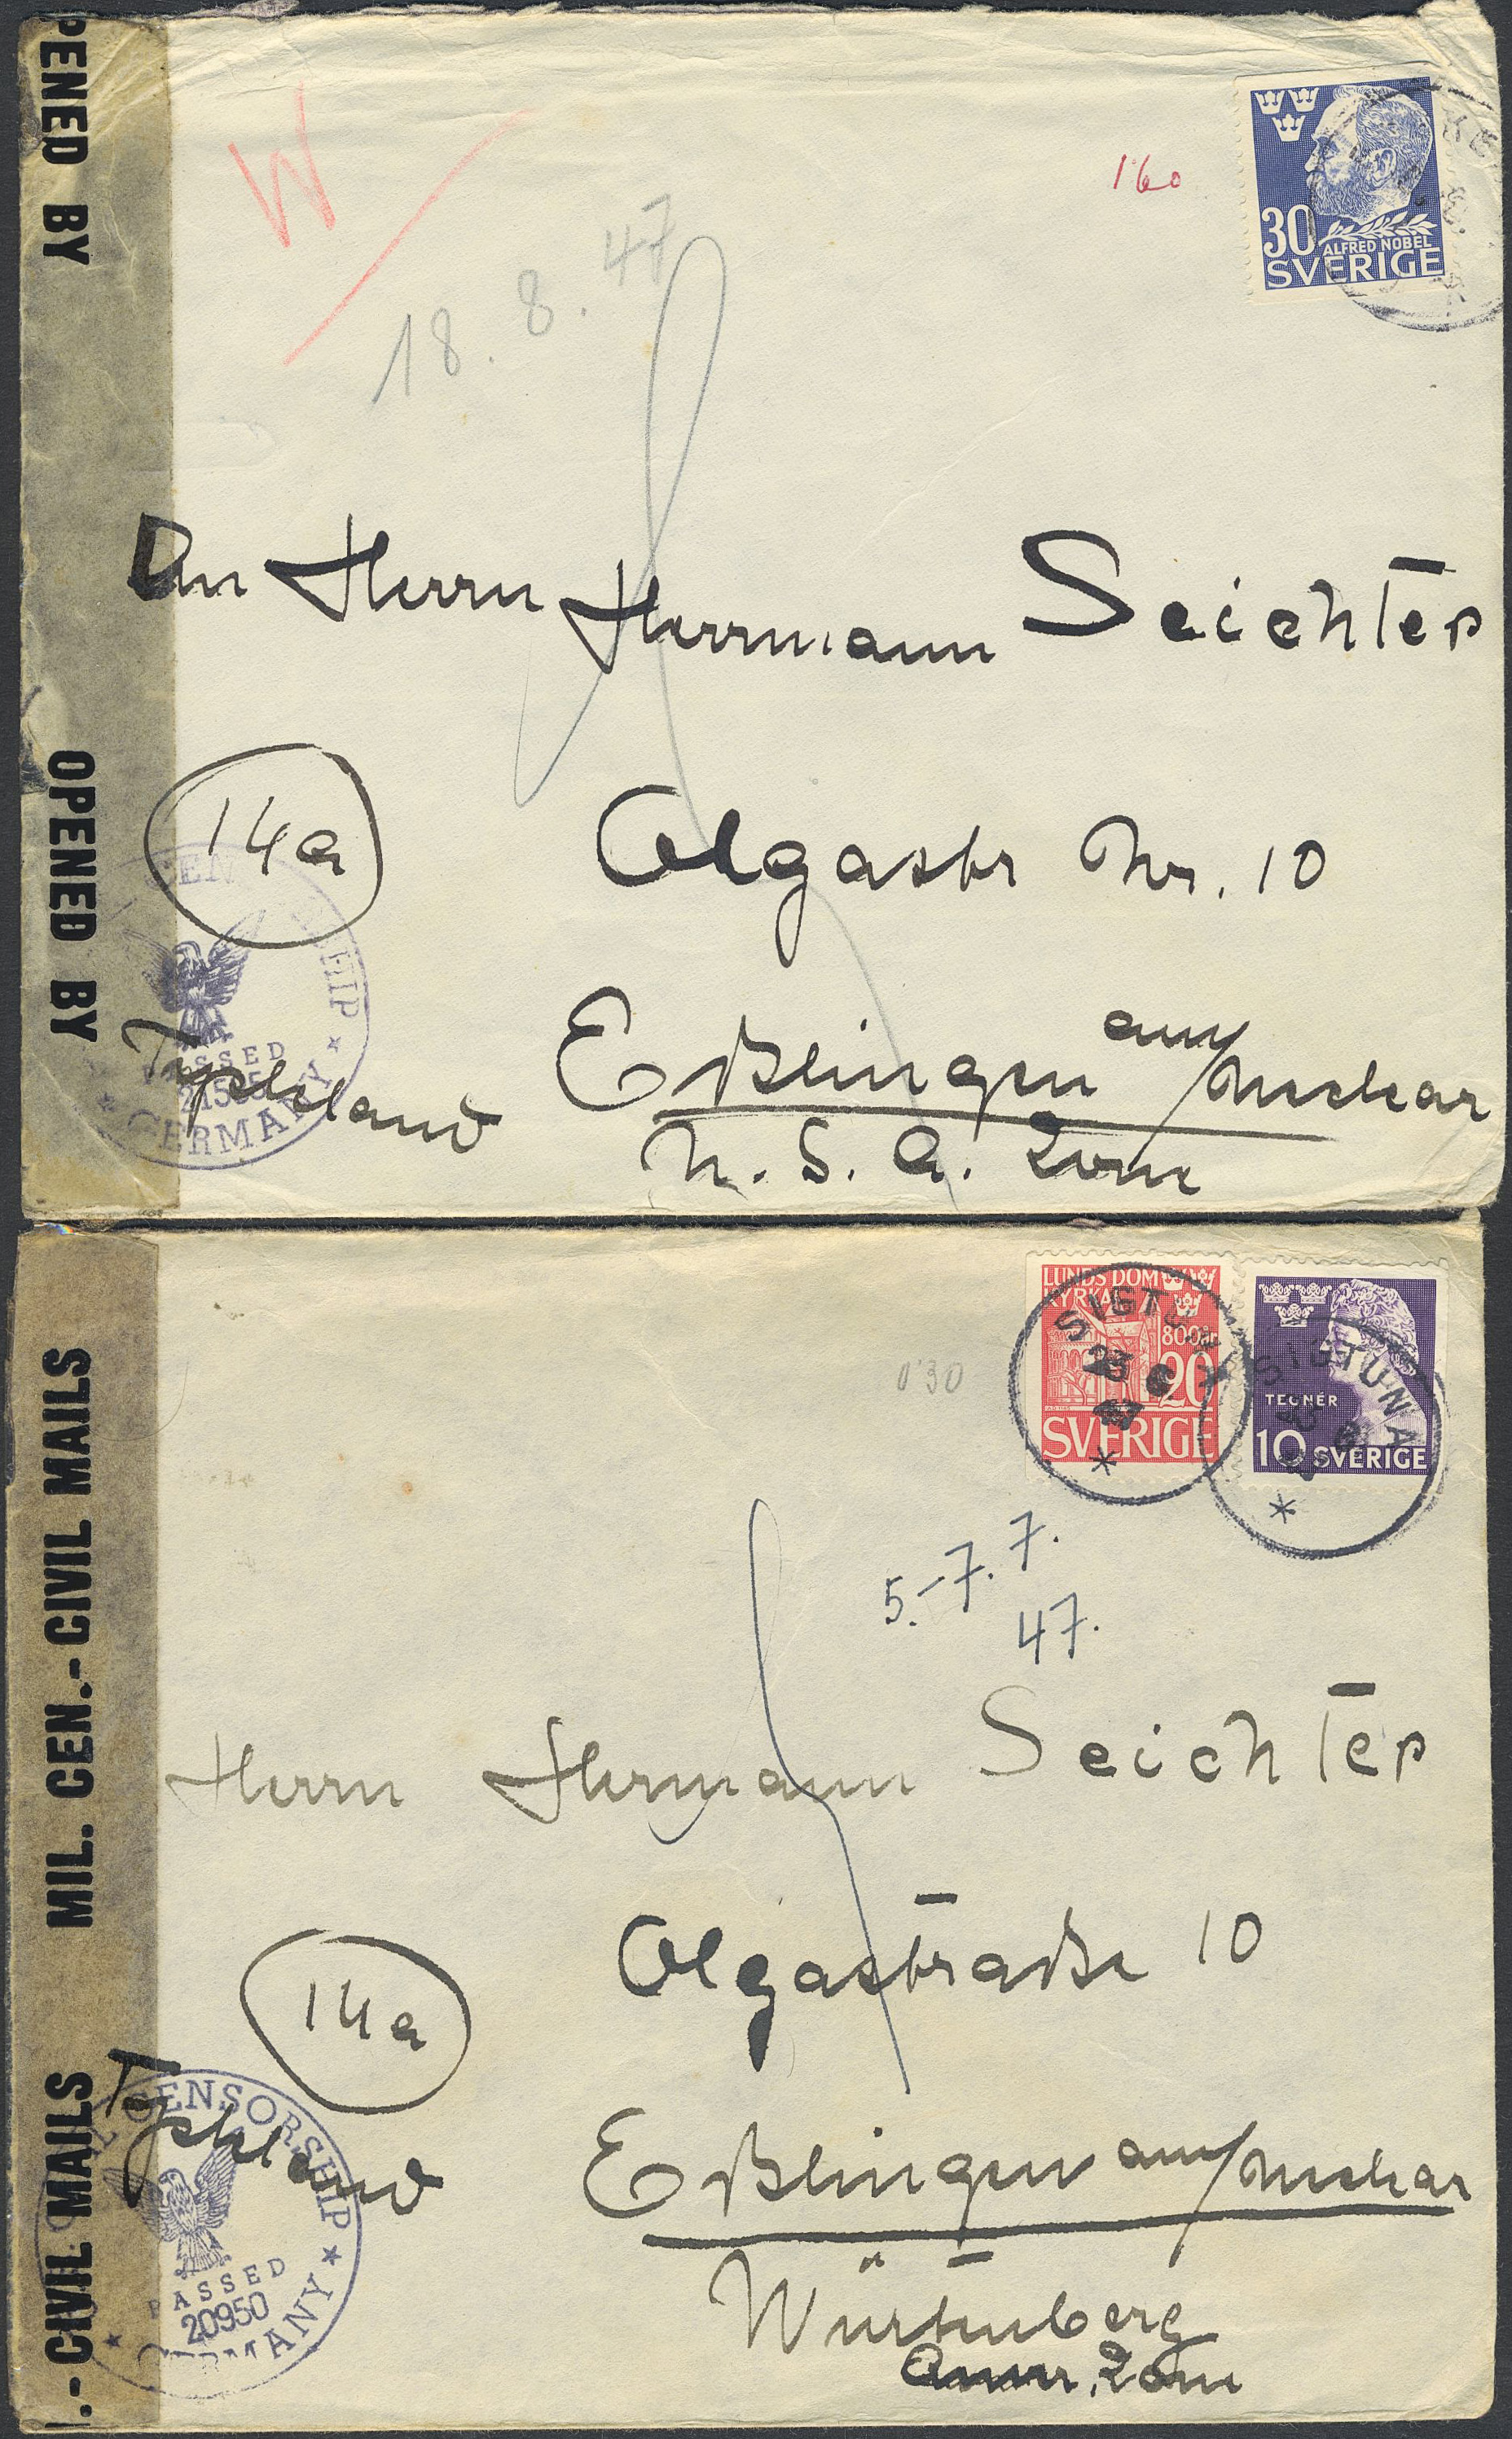 PENED BY
OPENED BY
W
18. 8. 47
1'60
30
ALFRED NOBEL
SVERIGE
An Herrn Herrmann Seichter
14a
Olgastr Nr. 10
Eßlingen am/Neckar
U.S.A. Zone
Tyskland
CEN HIP
PASSED
GERMANY
MIL. CEN.-CIVIL MAILS
.-CIVIL MAILS
LUNDS DOM
KYRKA
800år
20
SVERIGE
SIGTUNA
23 6
47
TEGNÉR
10 SVERIGE
SIGTUNA
0'30
5.-7. 7.
47.
Herrn Hermann Seichter
Olgastraße 10
14a
Eßlingen am/Neckar
Würtenberg
Amer. Zone
Tyskland
CENSORSHIP
PASSED
20950
GERMANY